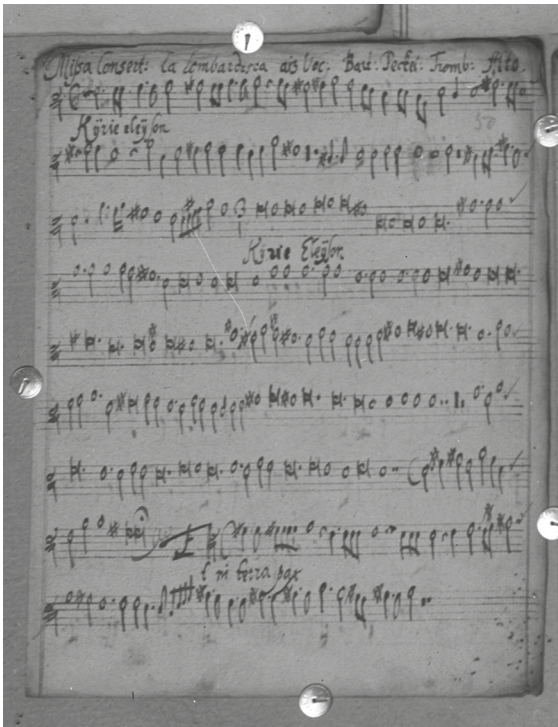 Missa Consert: la lombardesca a13 Voc: Bari: Perfei: Tromb: Alto.
50
Kÿrie eleÿson
Kÿrie Eleÿson
Et in terra pax